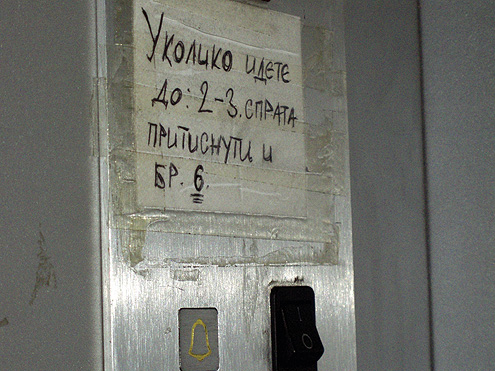 Уколико идете
до: 2-3. спрата
притиснути и
бр. 6.